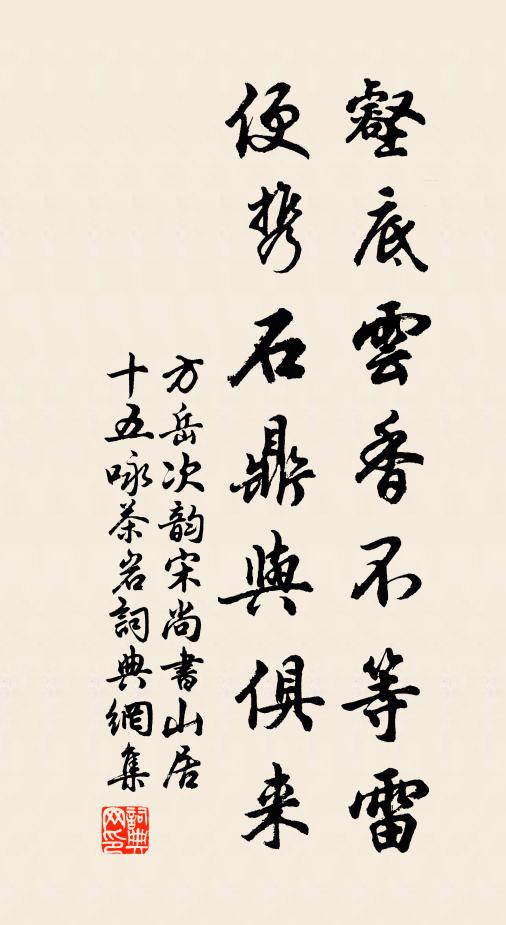 壑底雲香不等雷
便携石鼎與俱来
方岳次韵宋尚書山居
十五咏茶岩詞典網集
詞典网印